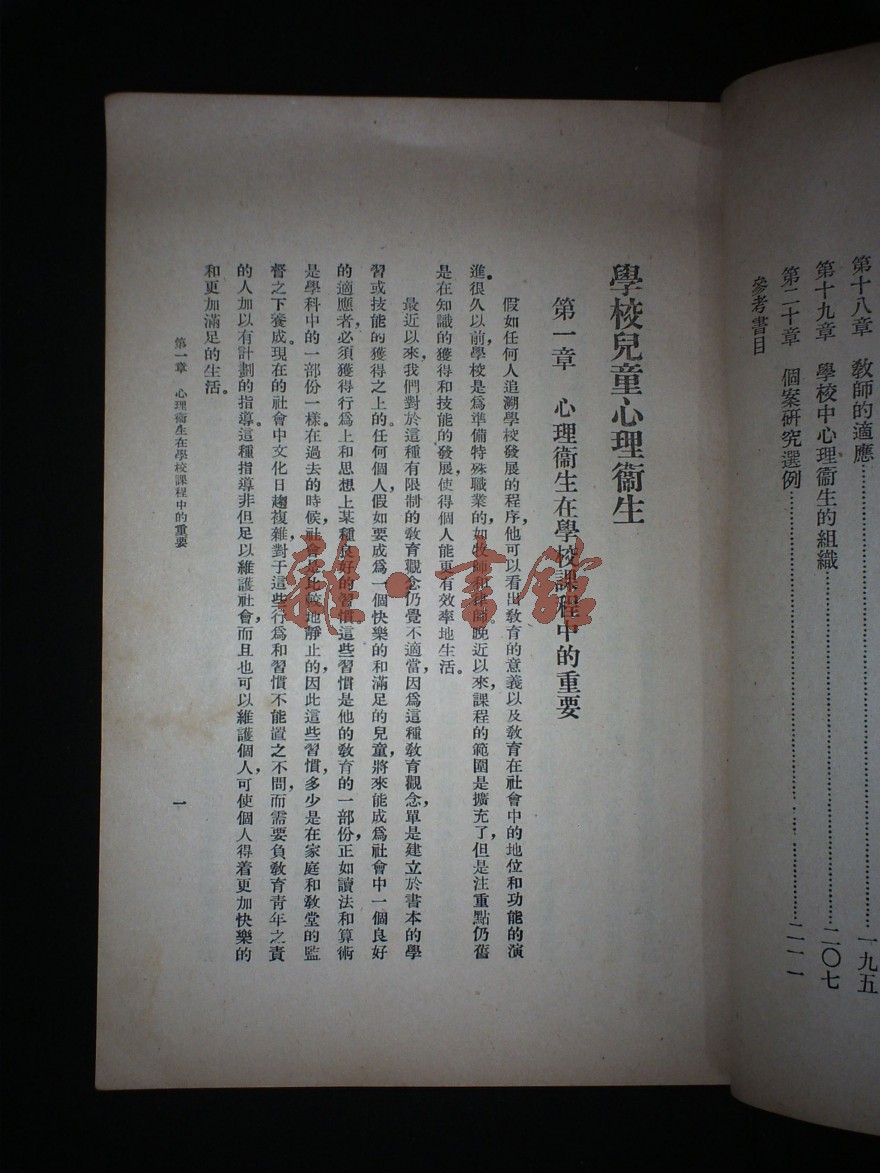 第十八章　教師的適應……………………一九五
第十九章　學校中心理衞生的組織……………………二〇七
第二十章　個案研究選例……………………二一一
參考書目
學校兒童心理衞生
第一章　心理衞生在學校課程中的重要
假如任何人追溯學校發展的程序，他可以看出教育的意義以及教育在社會中的地位和功能的演
進。很久以前，學校是爲準備特殊職業的，如牧師和律師。晚近以來，課程的範圍是擴充了，但是注重點仍舊
是在知識的獲得和技能的發展，使得個人能更有效率地生活。
最近以來，我們對於這種有限制的教育觀念仍覺不適當，因爲這種教育觀念，單是建立於書本的學
習或技能的獲得之上的。任何個人，假如要成爲一個快樂的和滿足的兒童，將來能成爲社會中一個良好
的適應者，必須獲得行爲上和思想上某種良好的習慣，這些習慣是他的教育的一部份，正如讀法和算術
是學科中的一部份一樣。在過去的時候，社會是比較地靜止的，因此這些習慣，多少是在家庭和教堂的監
督之下養成。現在的社會中文化日趨複雜，對于這些行爲和習慣不能置之不問，而需要負教育青年之責
的人加以有計劃的指導。這種指導非但足以維護社會，而且也可以維護個人，可使個人得着更加快樂的
和更加滿足的生活。
第一章　心理衞生在學校課程中的重要
一
雜·書館